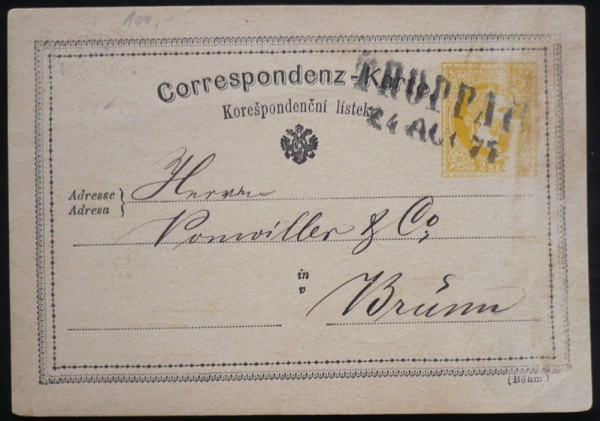 100,-
Correspondenz-Karte
Korešpondenční lístek
TROPPAU
24 AUG 77
Adresse
Adresa
Herren
Vonwiller & Co,
in
v
Brünn
(Böhm)